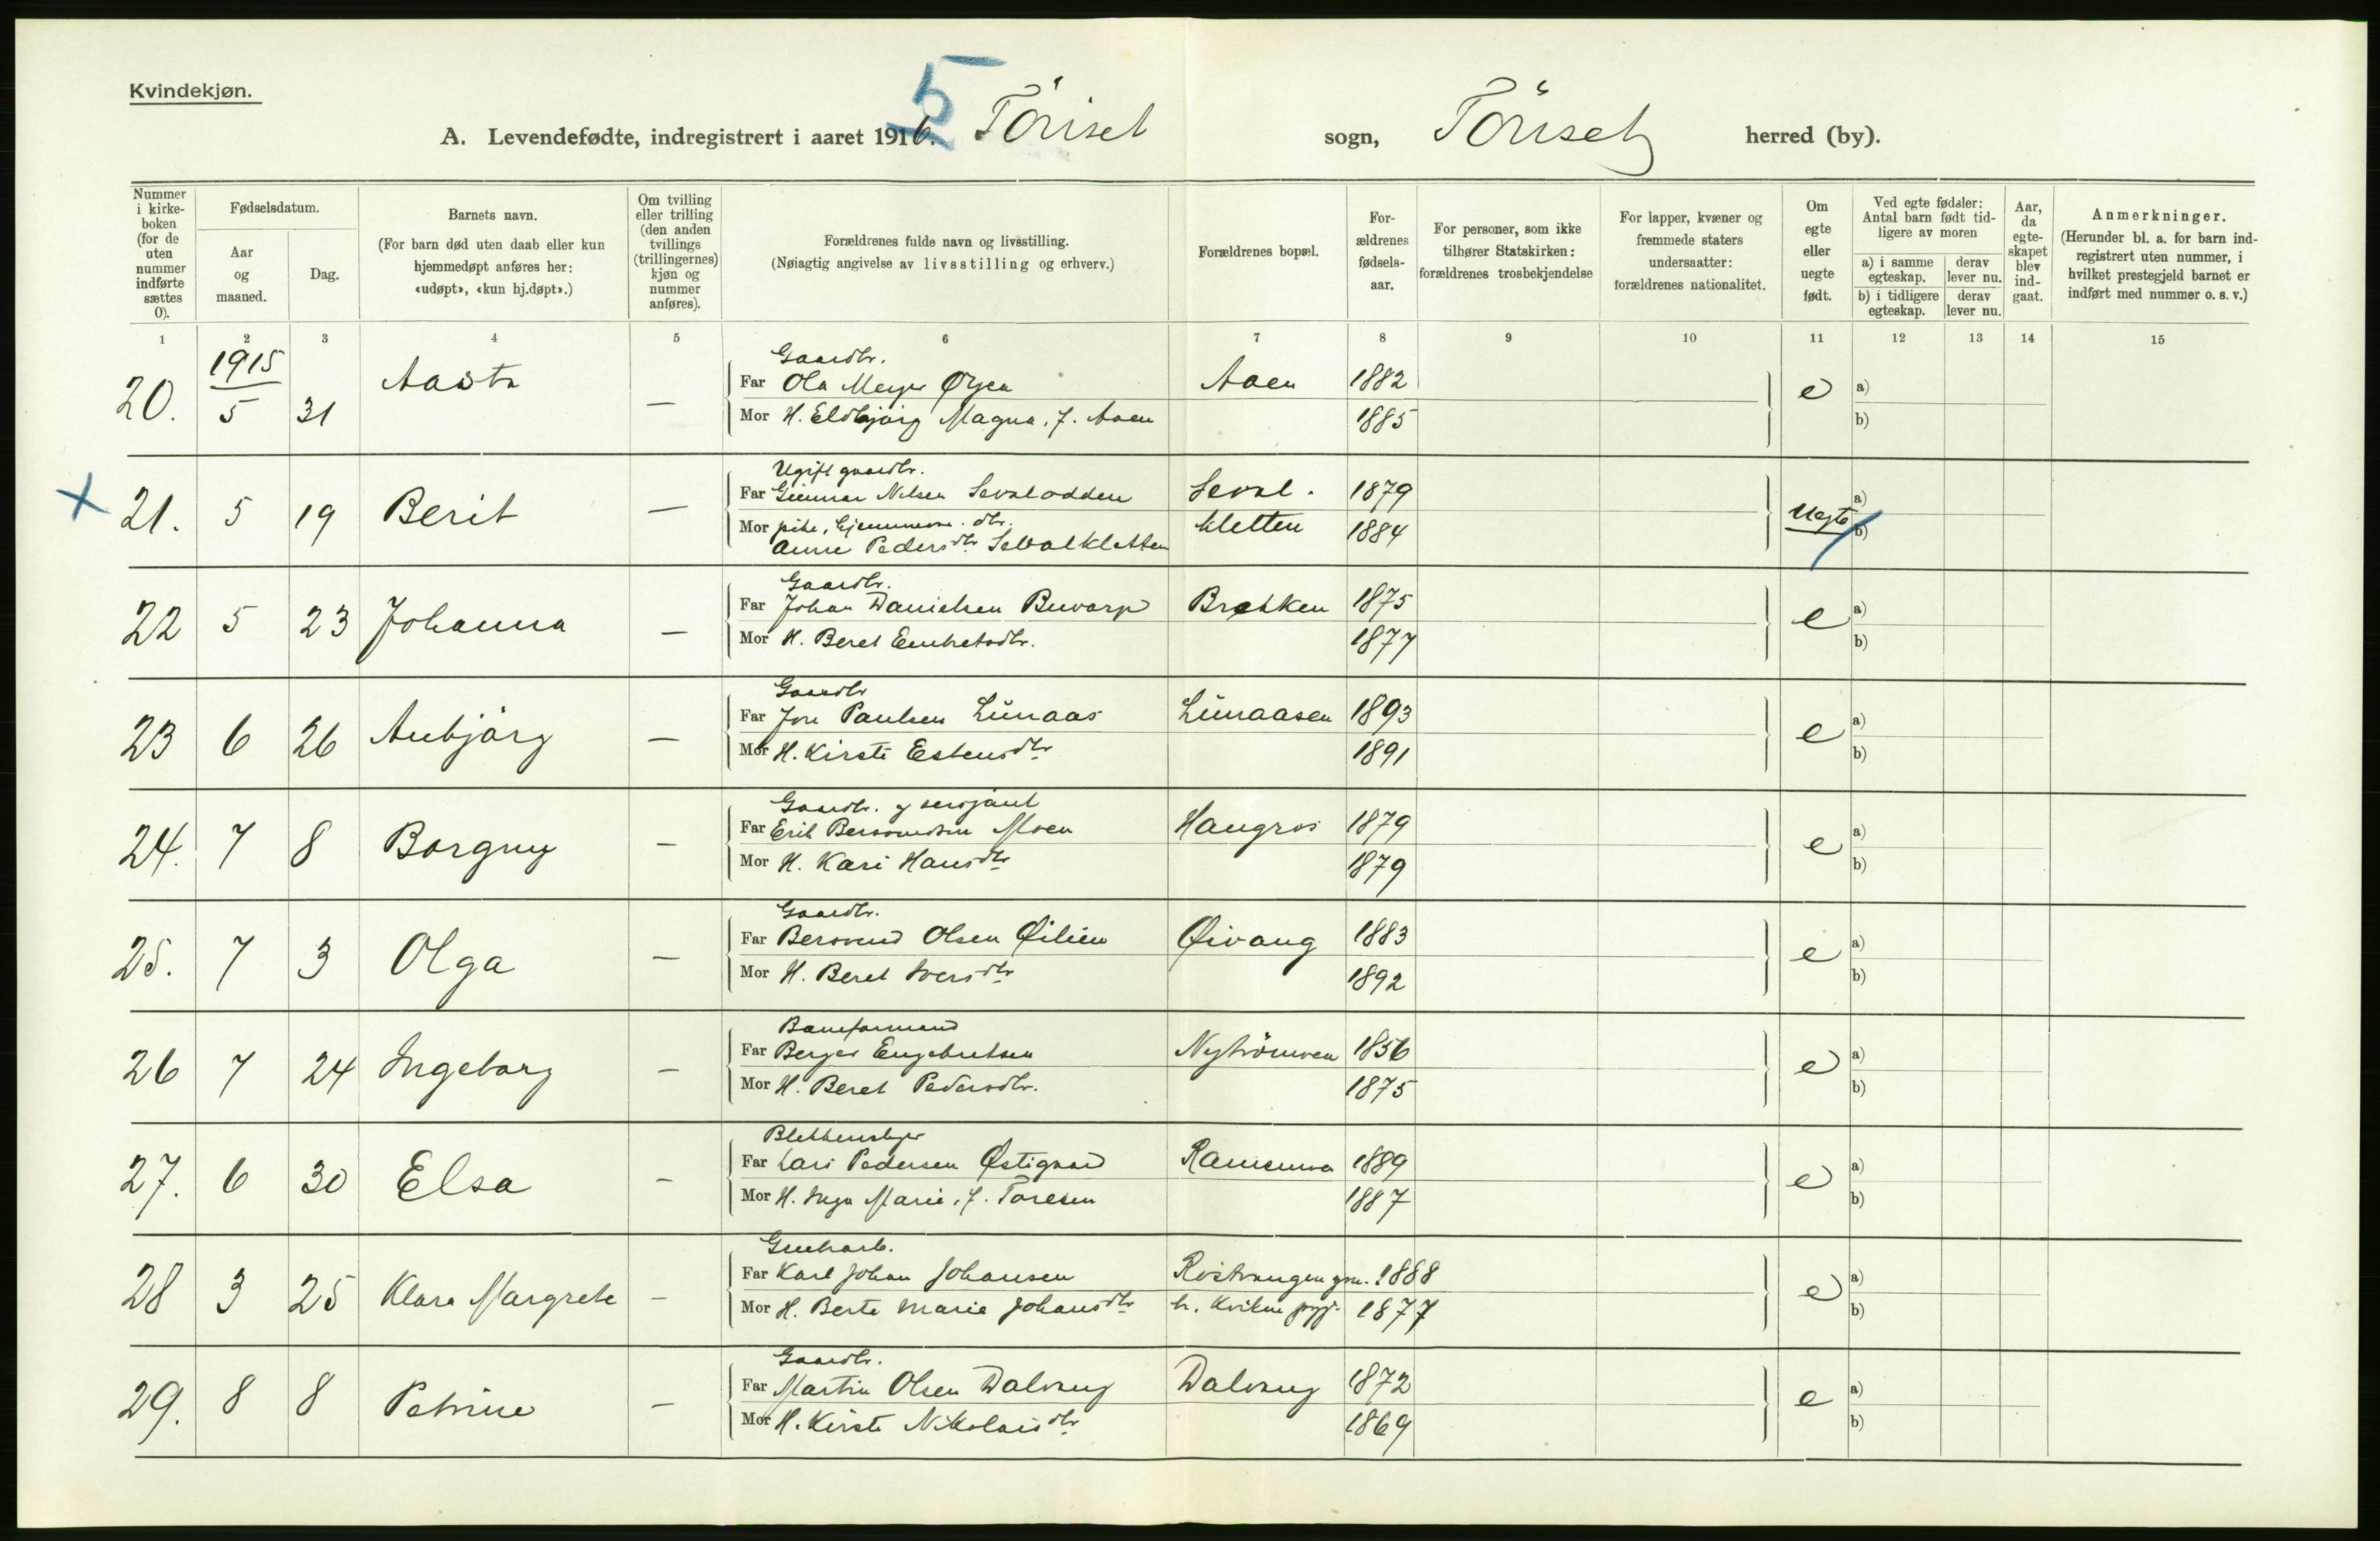 Kvindekjøn.
A. Levendefødte, indregistrert i aaret 1916. 5 Töriset sogn, Töriset herred (by).
Nummer i kirkeboken (for de uten nummer indførte sættes 0).
Fødselsdatum.
Aar og maaned.
Dag.
Barnets navn.
(For barn død uten daab eller kun hjemmedøpt anføres her: «udøpt», «kun hj.døpt».)
Om tvilling eller trilling (den anden tvillings (trillingernes) kjøn og nummer anføres).
Forældrenes fulde navn og livsstilling.
(Nøiagtig angivelse av livsstilling og erhverv.)
Forældrenes bopæl.
Forældrenes fødselsaar.
For personer, som ikke tilhører Statskirken: forældrenes trosbekjendelse
For lapper, kvæner og fremmede staters undersaatter: forældrenes nationalitet.
Om egte eller uegte født.
Ved egte fødsler: Antal barn født tidligere av moren
a) i samme egteskap. derav lever nu.
b) i tidligere egteskap. derav lever nu.
Aar, da egteskapet blev indgaat.
Anmerkninger.
(Herunder bl. a. for barn indregistrert uten nummer, i hvilket prestegjeld barnet er indført med nummer o. s. v.)
1 2 3 4 5 6 7 8 9 10 11 12 13 14 15
1915
Gaardbr.
20. 5 31 Aasta — Far Ola Meyer Øyen Aaen 1882 e a)
Mor H. Eldbjörg Magna, f. Aaen 1885 b)
Ugift gaardbr.
x 21. 5 19 Berit — Far Gunnar Nilsen Sevalodden Seval. 1879 uegte a)
Mor pike, hjemmev. dtr. kletten 1884 b)
Anne Pedersdtr Sevalkletten
Gaardbr.
22 5 23 Johanna — Far Johan Danielsen Buvarp Brekken 1875 e a)
Mor H. Beret Embretsdtr. 1877 b)
Gaardbr
23 6 26 Anbjörg — Far Jon Paulsen Lünaas Lünaasen 1893 e a)
Mor H. Kirsti Estensdtr 1891 b)
Gaardbr. og sersjant
24. 7 8 Borgny — Far Erik Bersvendsen Moen Haugros 1879 e a)
Mor H. Kari Hansdtr 1879 b)
Gaardbr.
25. 7 3 Olga — Far Bersvend Olsen Øilien Øivang 1883 e a)
Mor H. Beret Iversdtr 1892 b)
Baneformand
26 7 24 Ingeborg — Far Berger Engebretsen Nyströmoen 1856 e a)
Mor H. Beret Pedersdtr. 1875 b)
Blekkenslager
27. 6 30 Elsa — Far Lars Pedersen Østigaard Ramsmoen 1889 e a)
Mor H. Inga Marie, f. Toresen 1887 b)
Grubearb.
28 3 25 Klara Margrete — Far Karl Johan Johansen Röstvangen grv. 1888 e a)
Mor H. Berte Marie Johansdtr h. Kvikne prgj. 1877 b)
Gaardbr.
29. 8 8 Petrine — Far Martin Olsen Dalvang Dalvang 1872 e a)
Mor H. Kirsti Nikolaisdtr 1869 b)